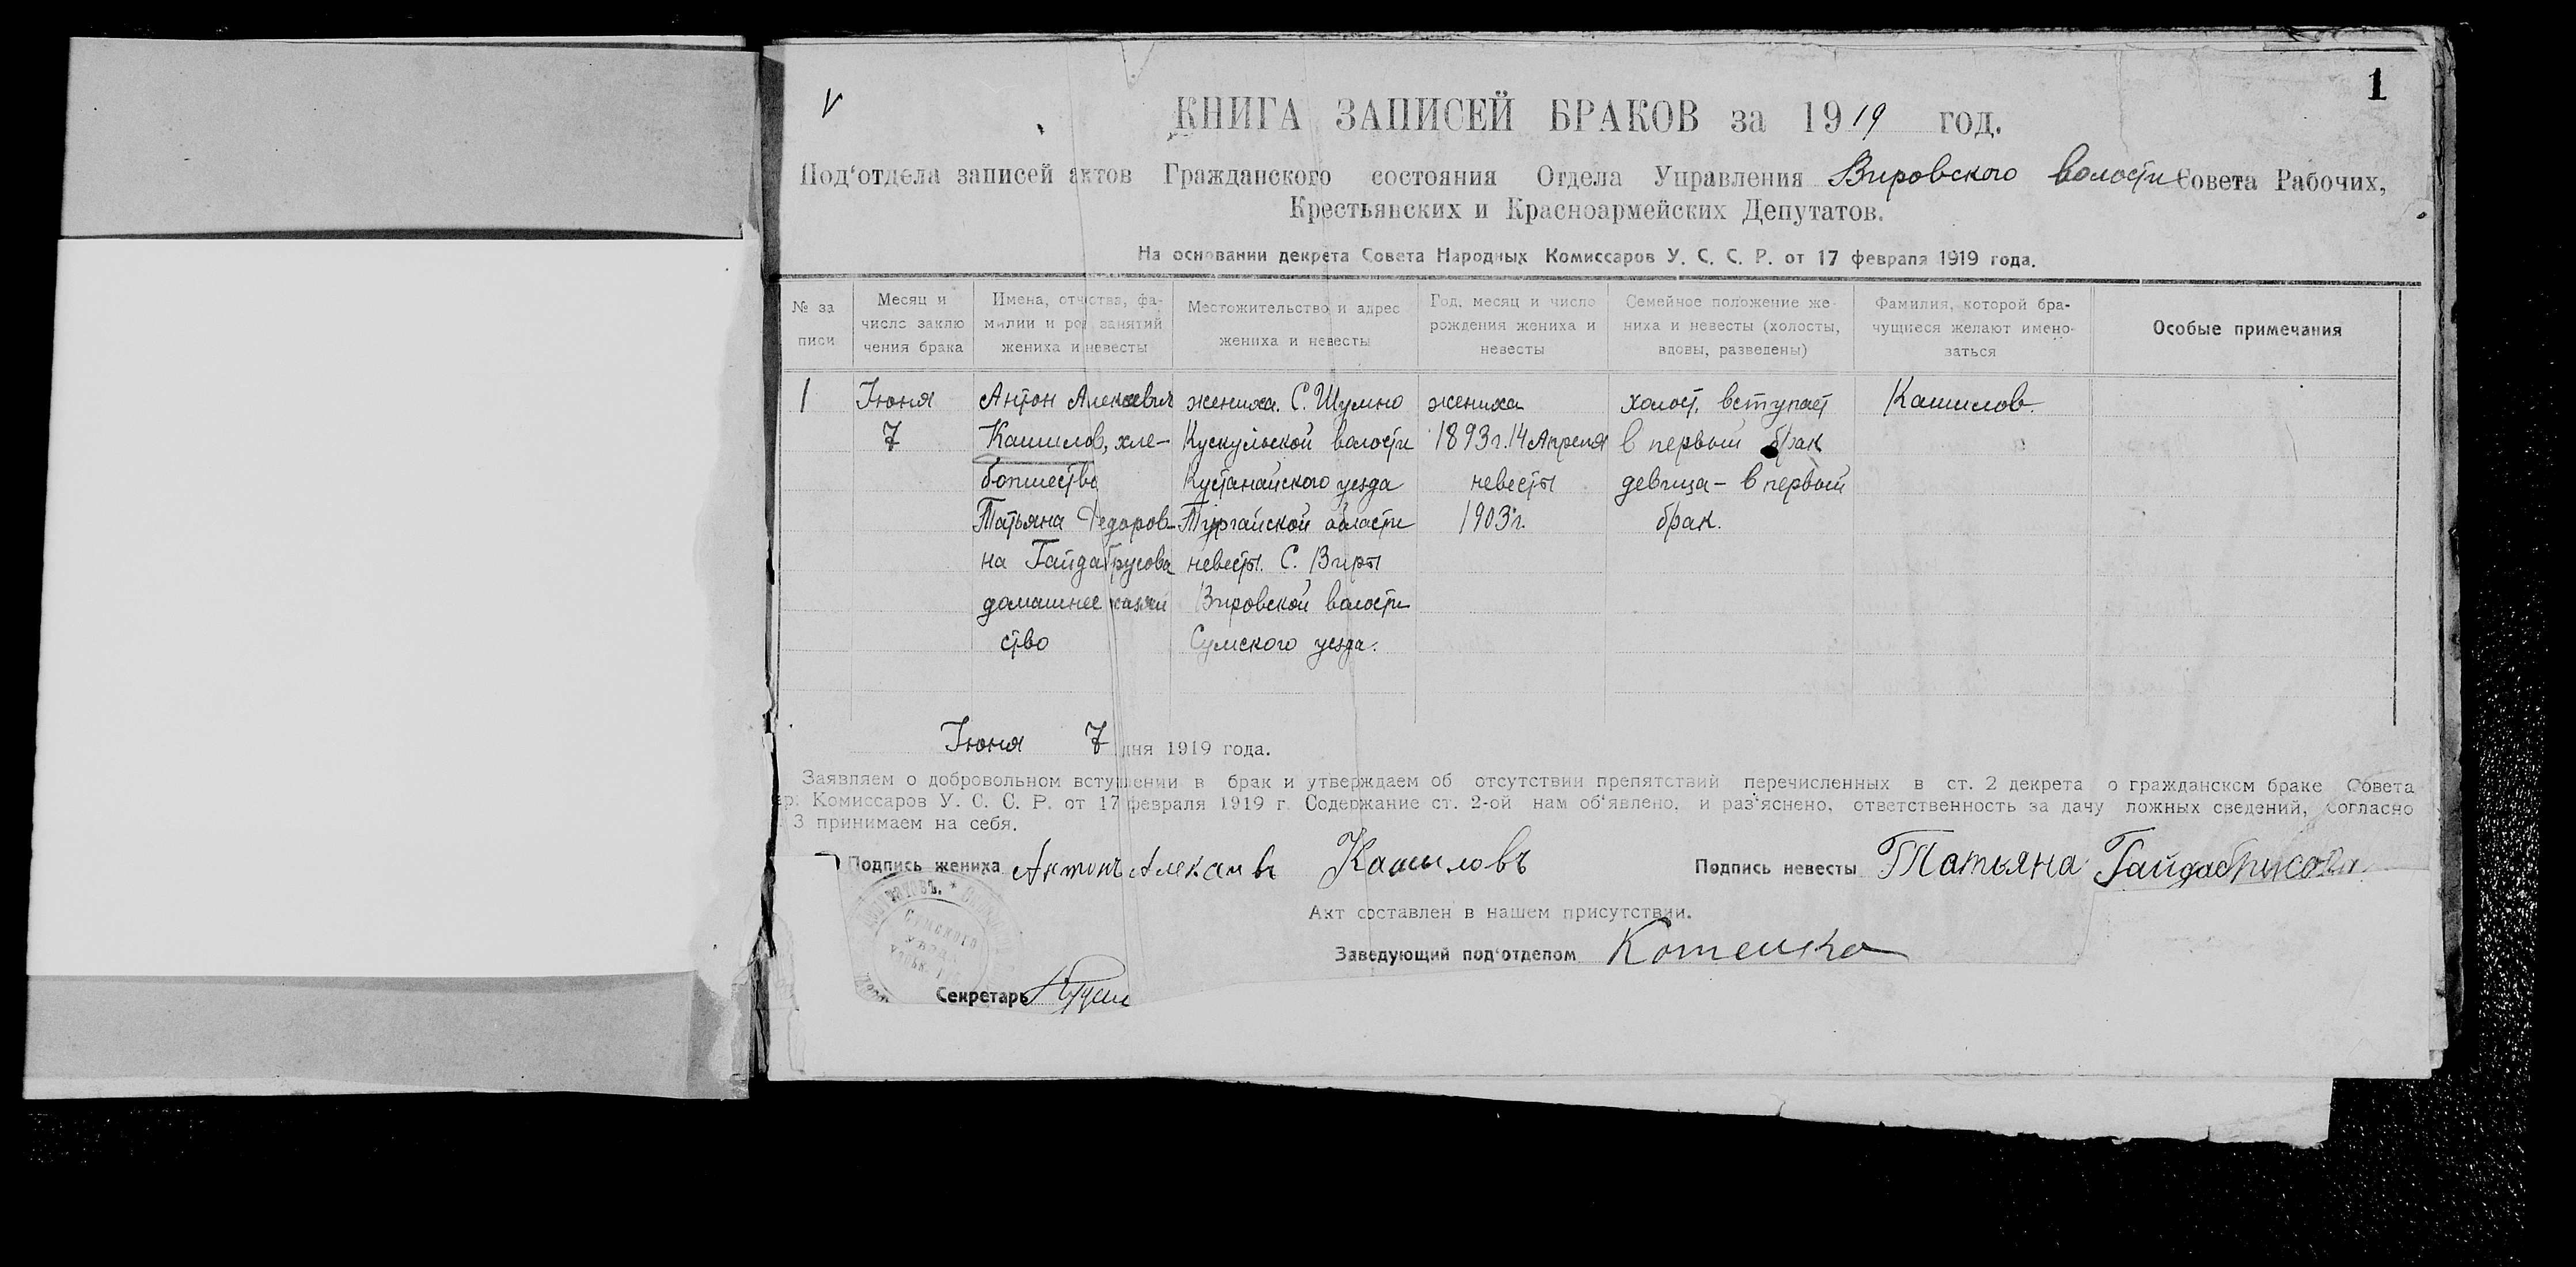 1
V
КНИГА ЗАПИСЕЙ БРАКОВ за 1919 год.
Под‘отдела записей актов Гражданского состояния Отдела Управления Вировского волости Совета Рабочих,
Крестьянских и Красноармейских Депутатов.
На основании декрета Совета Народных Комиссаров У. С. С. Р. от 17 февраля 1919 года.
№ за
писи
Месяц и
число заклю
чения брака
Имена, отчества, фа-
милии и род занятий
жениха и невесты
Местожительство и адрес
жениха и невесты
Год, месяц и число
рождения жениха и
невесты
Семейное положение же-
ниха и невесты (холосты,
вдовы, разведены)
Фамилия, которой бра-
чущиеся желают имено-
ваться
Особые примечания
1
Июня
7
Антон
Кашилов, хле-
бопшество
Татьяна Федоров-
на Гайдабрусова
домашнее
ство
жениха. С. Шумно
Кускульской волости
Кустанайского уезда
Тургайской области
невесты. С. Виры
Вировской волости
Сумского уезда.
жениха
1893 г. 14 Апреля
невесты
1903 г.
холост, вступает
в первый брак
девица – в первый
брак.
Кашилов.
Июня 7 дня 1919 года.
Заявляем о добровольном вступлении в брак и утверждаем об отсутствии препятствий перечисленных в ст. 2 декрета о гражданском браке Совета
ар. Комиссаров У. С. С. Р. от 17 февраля 1919 г. Содержание ст. 2-ой нам об‘явлено, и раз‘яснено, ответственность за дачу ложных сведений, согласно
3 принимаем на себя.
Подпись жениха Антонъ Кашиловъ
Подпись невесты Татьяна Гайдабрусова
Акт составлен в нашем присутствии.
Заведующий под‘отделом Котенко
Сумского
Секретарь